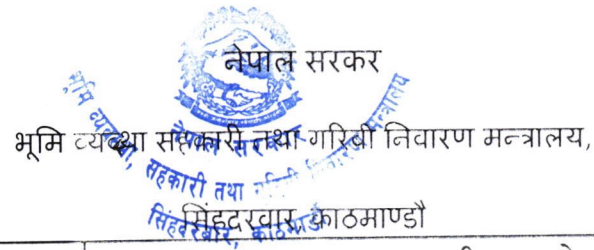 नेपाल सरकर
भूमि व्यवस्था सहकारी तथा गरिबी निवारण मन्त्रालय,
सिंहदरवार, काठमाण्डौ
भूमि व्यवस्था, सहकारी तथा गरिबी निवारण मन्त्रालय
नेपाल सरकार
सिंहदरबार, काठमाडौं